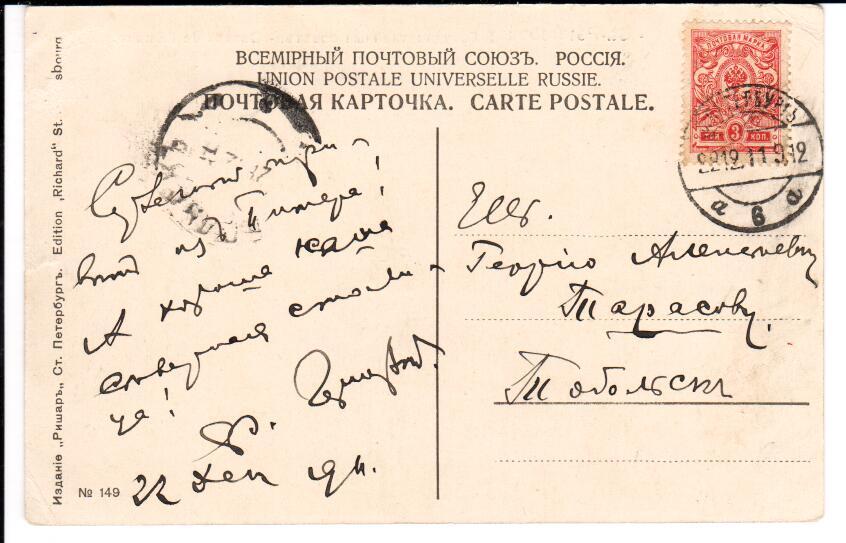 ВСЕМІРНЫЙ ПОЧТОВЫЙ СОЮЗЪ. РОССІЯ.
UNION POSTALE UNIVERSELLE RUSSIE.
ПОЧТОВАЯ КАРТОЧКА. CARTE POSTALE.
ПОЧТОВАЯ МАРКА
3
КОП.
22 12.11 9 12
а 6 а
при-
вѣт из "Питера!
А хороша наша
сѣверная столи-
ца!
22 Дек 1911.
Георгію Алексѣевичу
Тарасову.
Тобольскъ
№ 149
Изданіе „Ришаръ„ Ст. Петербургъ. Edition „Richard“ St. sbourg